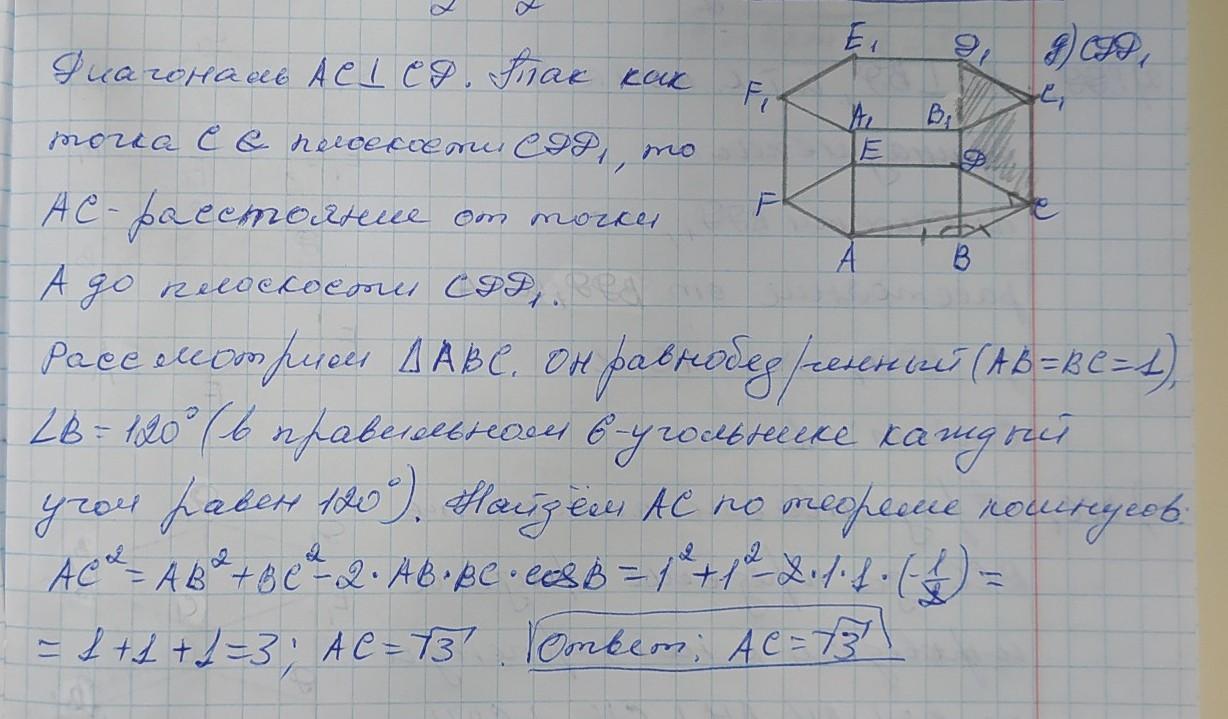 2 2
E₁ D₁ д) CDD₁
Диагональ AC⊥CD. Так как
F₁ C₁
A₁ B₁
точка C ∈ плоскости CDD₁, то
E D
AC - расстояние от точки
F C
A B
A до плоскости CDD₁.
Рассмотрим ΔABC. он равнобедренный (AB=BC=1),
∠B = 120° (в правильном 6-угольнике каждый
угол равен 120°). Найдём AC по теореме косинусов:
AC² = AB² + BC² - 2·AB·BC·cosB = 1² + 1² - 2·1·1·(-1/2) =
= 1+1+1=3; AC = √3. Ответ: AC = √3